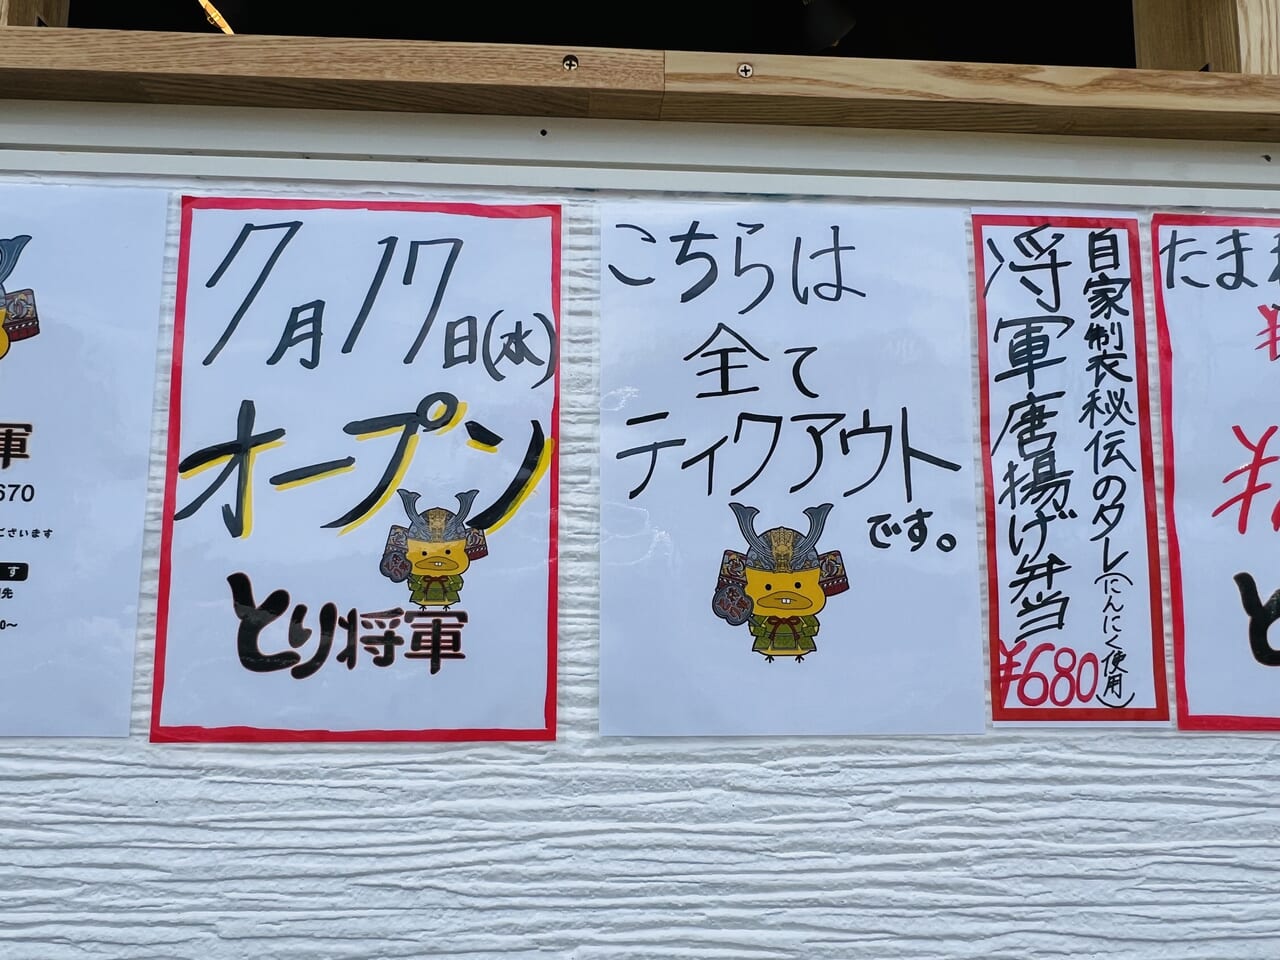 軍
670
ございます
す
先
0～
7月17日(水)
オープン
とり将軍
こちらは
全て
ティクアウト
です。
自家制衣秘伝のタレ(にんにく使用)
将軍唐揚げ弁当
¥680
たま
¥
と